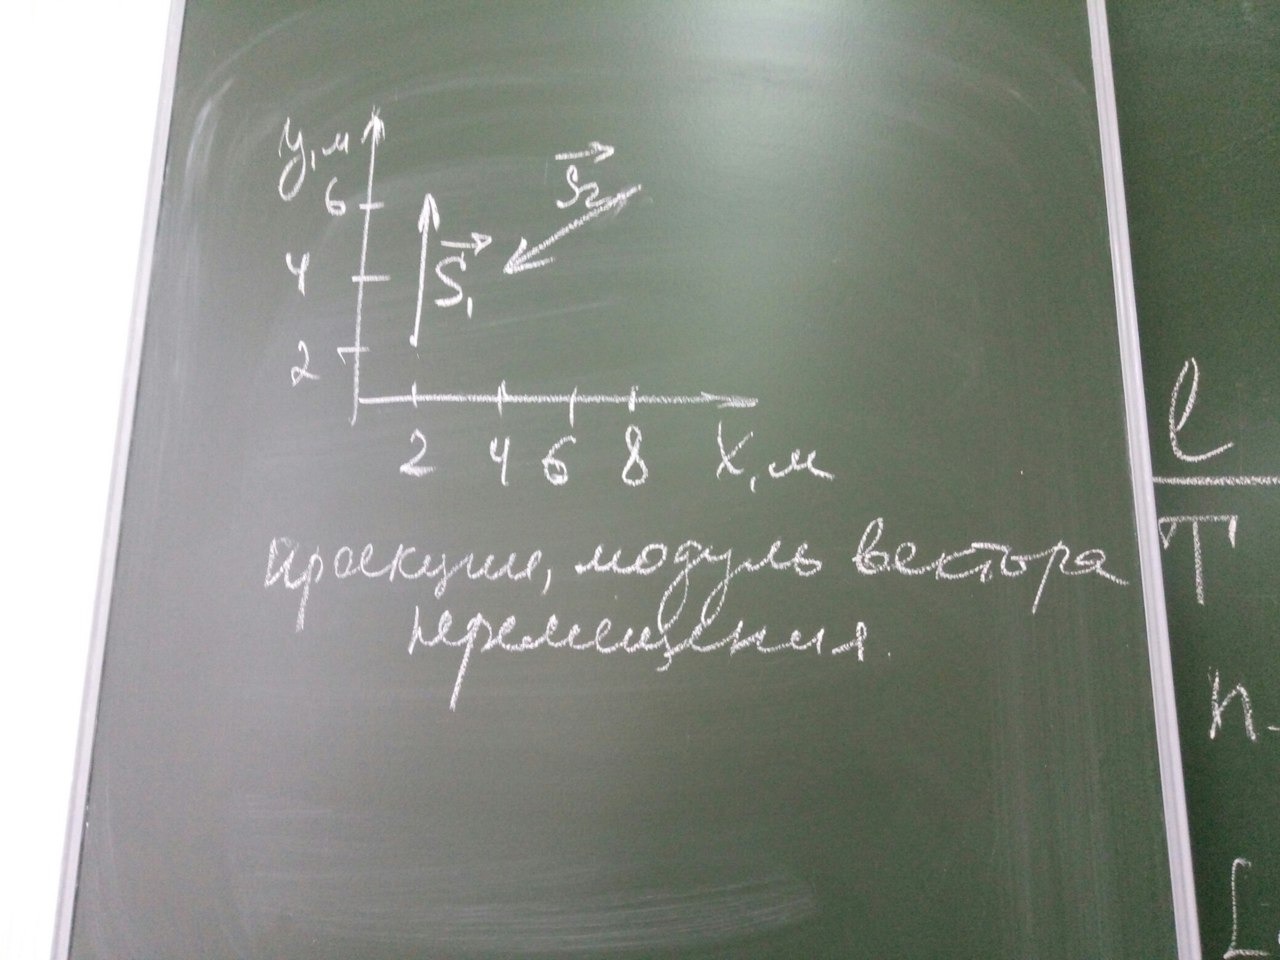 y, м
6
4
2
S₁
S₂
2 4 6 8 X, м
проекции, модуль вектора
перемещения.
l
T
n
L